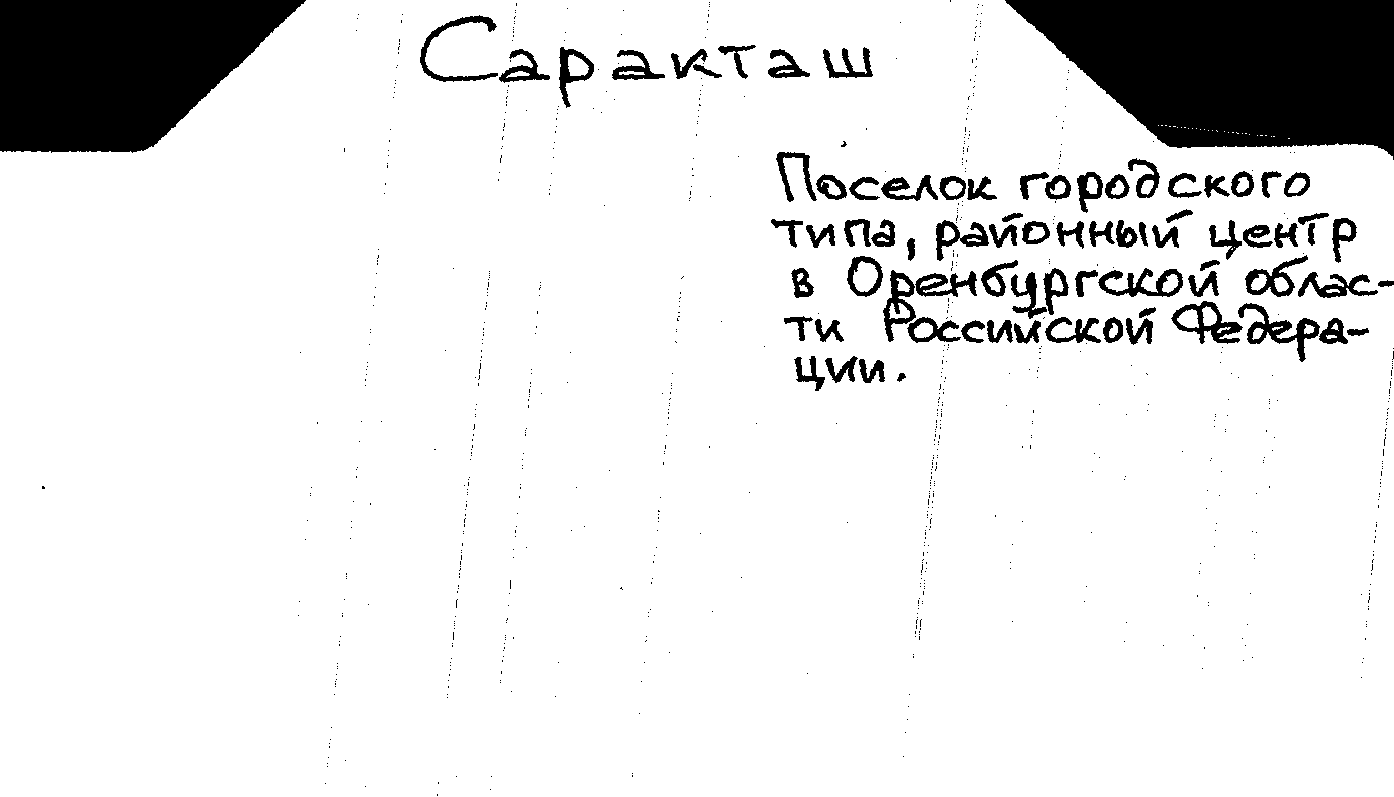 Саракташ
Поселок городского
типа, районный центр
в Оренбургской облас-
ти Российской Федера-
ции.